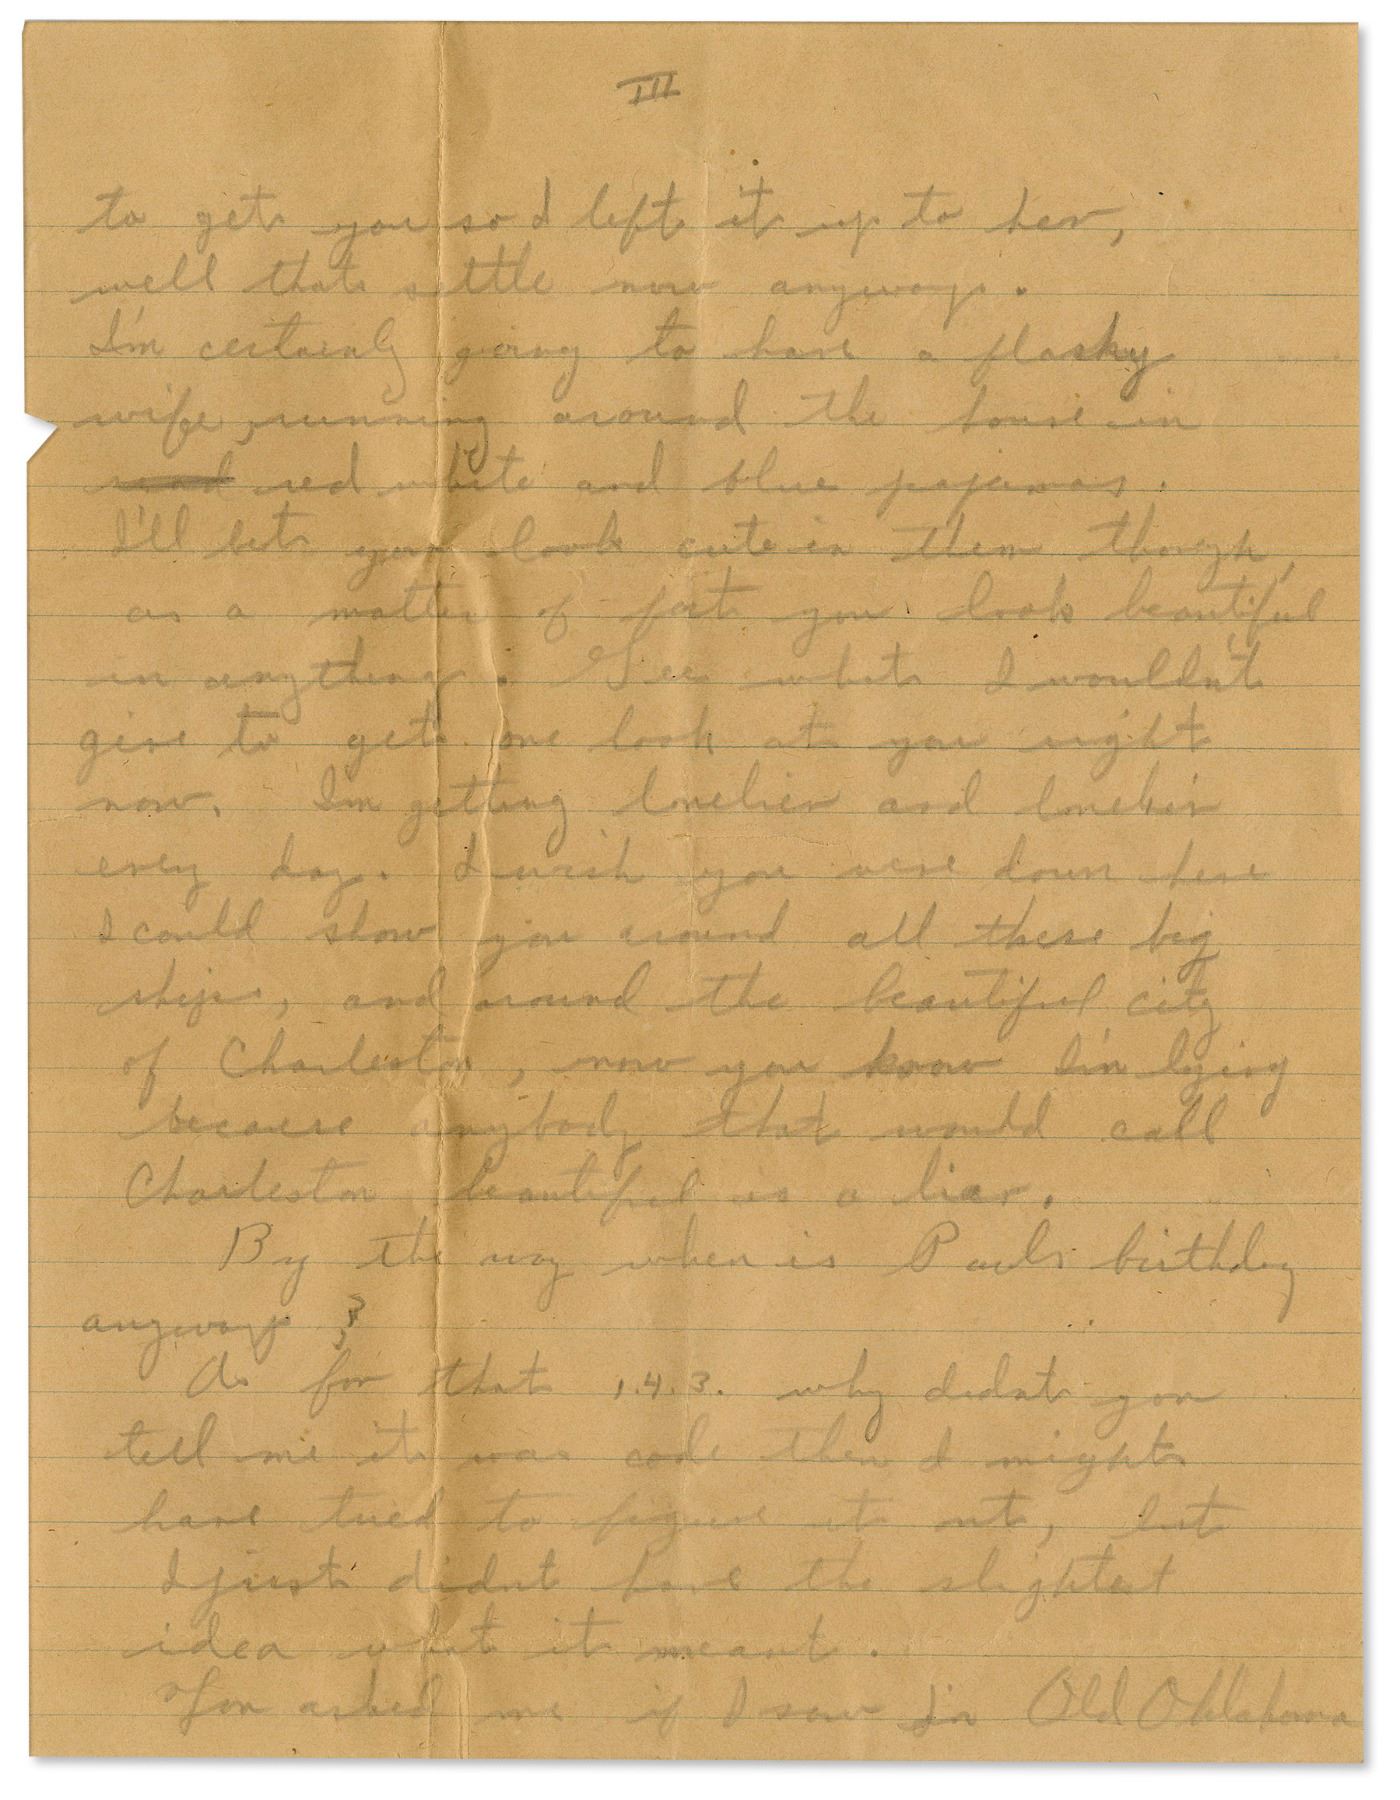 III
to get you so I left it up to her,
well that settle now anyways.
I'm certainly going to have a flashy
wife, running around the house in
read red white and blue pajamas.
I'll bet you look cute in them though,
as a matter of fact you look beautiful
in anything. Gee what I wouldn't
give to get one look at you right
now. Im getting lonelier and lonelier
every day. I wish you were down here
I could show you around all these big
ships, and around the beautiful city
of Charleston, now you know I'm lying
because anybody that would call
Charleston beautiful is a liar.
By the way when is Pauls birthday
anyways?
As for that 1.4.3. why didnt you
tell me it was code then I might
have tried to figure it out, but
I just didnt have the slightest
idea what it meant.
You asked me if I saw In Old Oklahoma